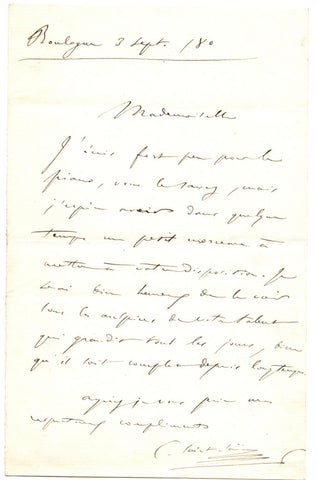 Boulogne 3 sept. 180
Mademoiselle
J'écris fort peu pour le
piano, vous le savez, mais
j'espère avoir dans quelque
temps un petit morceau à
mettre à votre disposition. Je
serai bien heureux de le voir
sous les auspices de votre talent
qui grandit tous les jours, bien
qu'il soit complet depuis longtemps.
agréez je vous prie mes
respectueux compliments
C. Saint-Saëns